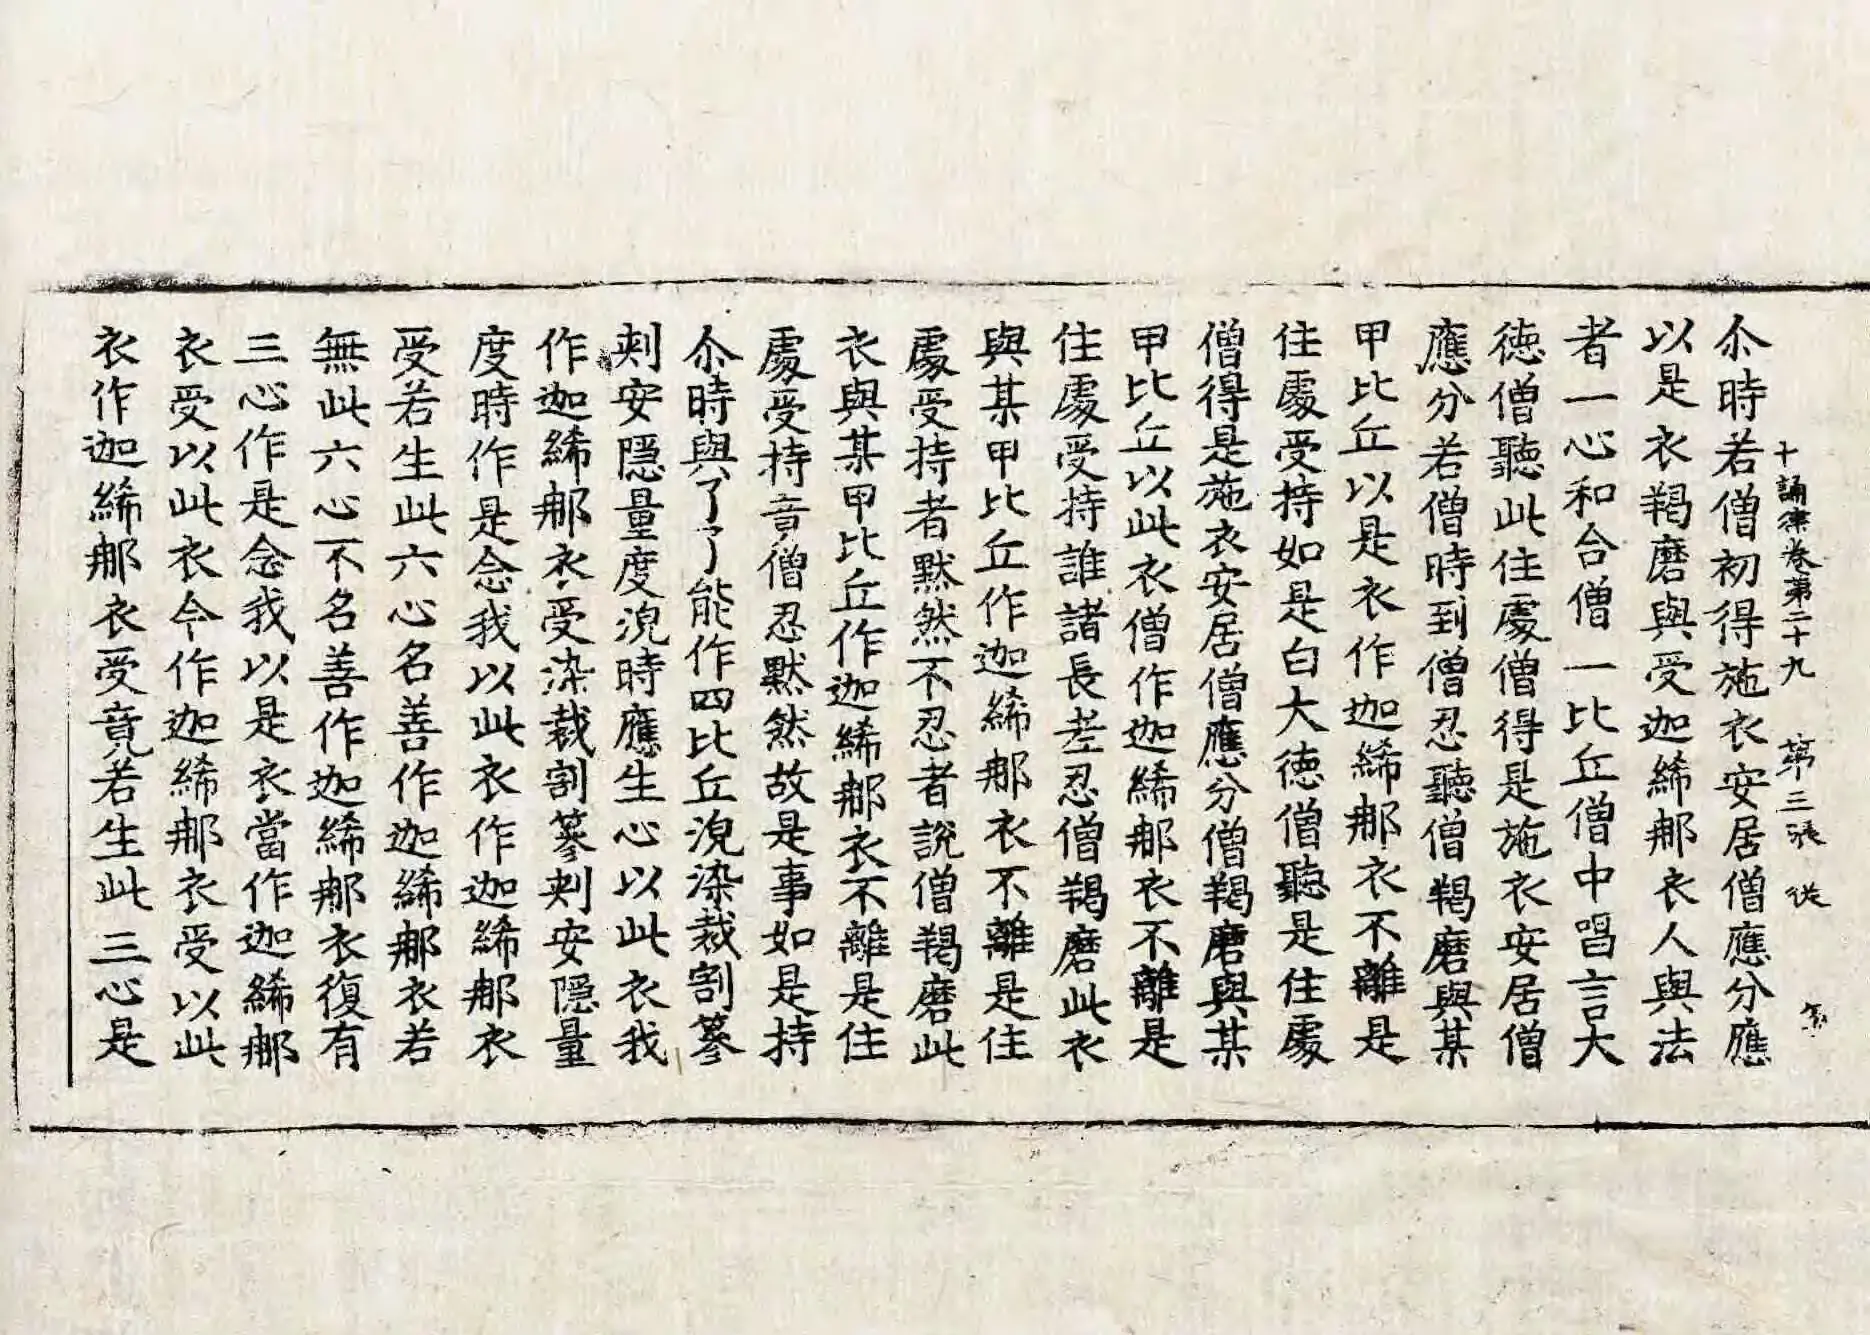 十誦律卷第二十九　第三張　従
尒時若僧初得施衣安居僧應分應
以是衣羯磨與受迦絺那衣人與法
者一心和合僧一比丘僧中唱言大
徳僧聽此住處僧得是施衣安居僧
應分若僧時到僧忍聽僧羯磨與某
甲比丘以是衣作迦絺那衣不離是
住處受持如是白大徳僧聽是住處
僧得是施衣安居僧應分僧羯磨與某
甲比丘以此衣僧作迦絺那衣不離是
住處受持誰諸長老忍僧羯磨此衣
與某甲比丘作迦絺那衣不離是住
處受持者黙然不忍者說僧羯磨此
衣與某甲比丘作迦絺那衣不離是住
處受持竟僧忍黙然故是事如是持
尒時與了了能作四比丘浣染裁割篸
刾安隱量度浣時應生心以此衣我
作迦絺那衣受染裁割篸刾安隱量
度時作是念我以此衣作迦絺那衣
受若生此六心名善作迦絺那衣若
無此六心不名善作迦絺那衣復有
三心作是念我以是衣當作迦絺那
衣受以此衣今作迦絺那衣受以此
衣作迦絺那衣受竟若生此三心是